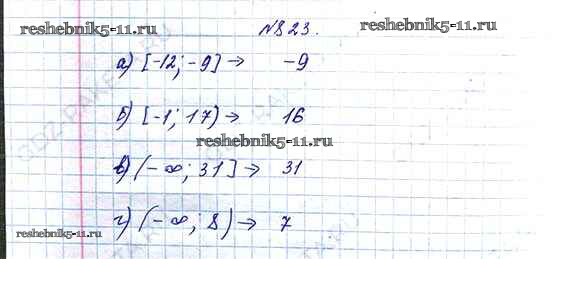 reshebnik5-11.ru №823. reshebnik5-11.ru
а) [-12; -9] → -9
б) [-1; 17) → 16
reshebnik5-11.ru
в) (-∞; 31] → 31
г) (-∞; 8) → 7
reshebnik5-11.ru